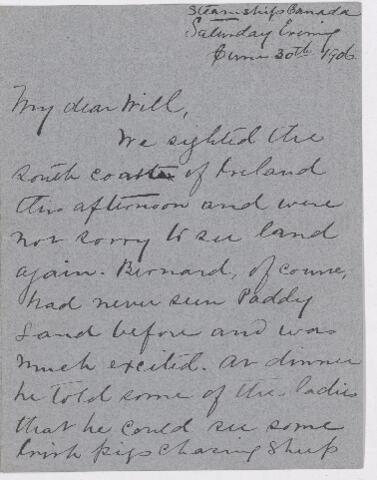 Steamship Canada
Saturday Evening
June 30th 1906
My dear Will,
We sighted the
south coast of Ireland
this afternoon and were
not sorry to see land
again. Bernard, of course,
had never seen Paddy
Land before and was
much excited. At dinner
he told some of the ladies
that he could see some
Irish pigs chasing sheep